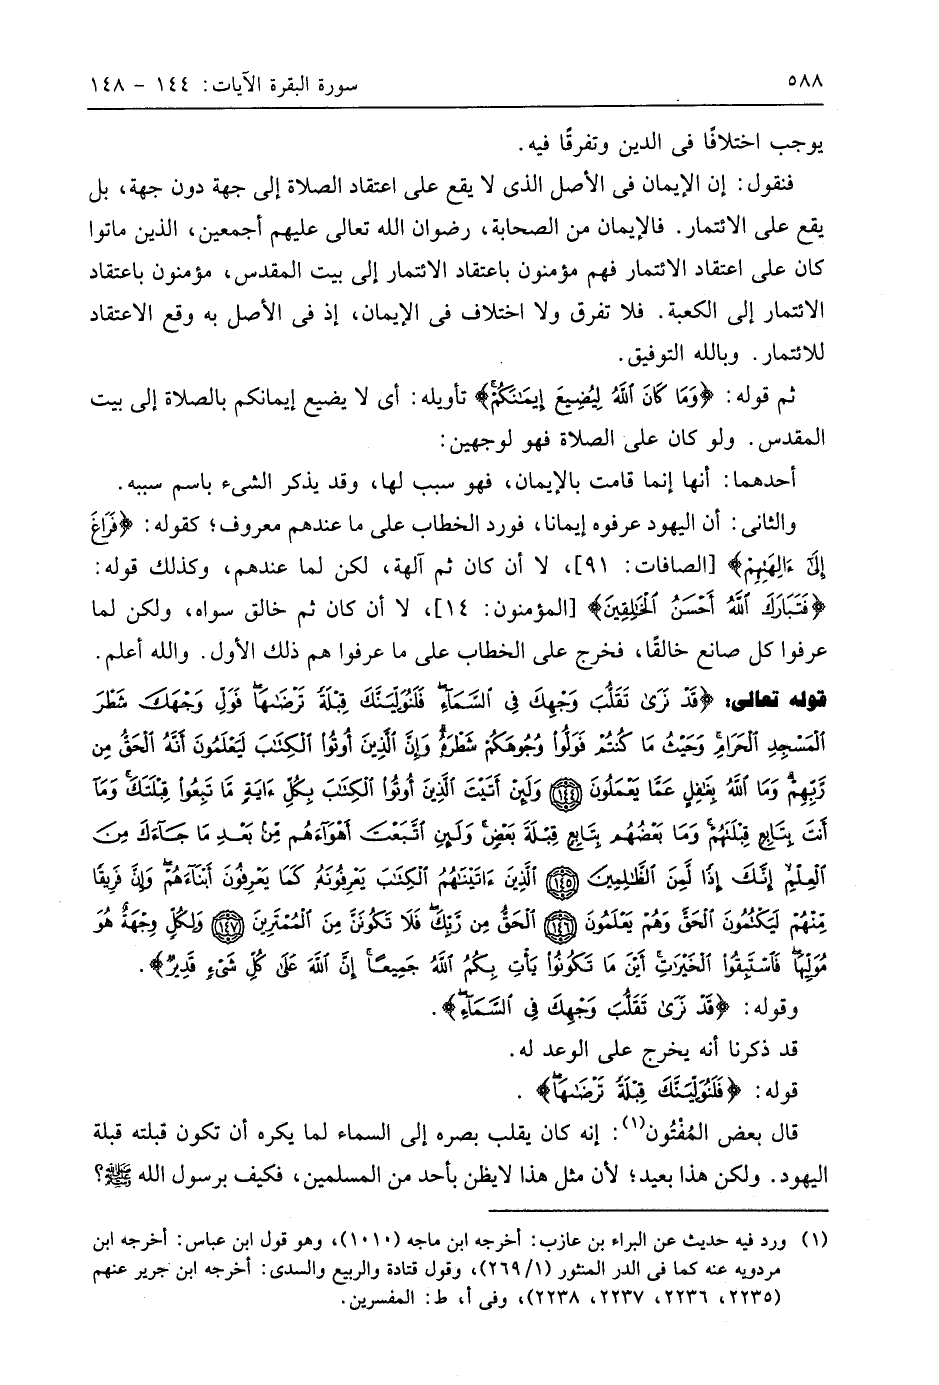 ٥٨٨ سورة البقرة الآيات: ١٤٤ - ١٤٨
يوجب اختلافًا فى الدين وتفرقًا فيه.
فنقول: إن الإيمان فى الأصل الذى لا يقع على اعتقاد الصلاة إلى جهة دون جهة، بل
يقع على الائتمار. فالإيمان من الصحابة، رضوان الله تعالى عليهم أجمعين، الذين ماتوا
كان على اعتقاد الائتمار فهم مؤمنون باعتقاد الائتمار إلى بيت المقدس، مؤمنون باعتقاد
الائتمار إلى الكعبة. فلا تفرق ولا اختلاف فى الإيمان، إذ فى الأصل به وقع الاعتقاد
للائتمار. وبالله التوفيق.
ثم قوله: ﴿وَمَا كَانَ ٱللَّهُ لِيُضِيعَ إِيمَـٰنَكُمْۚ﴾ تأويله: أى لا يضيع إيمانكم بالصلاة إلى بيت
المقدس. ولو كان على الصلاة فهو لوجهين:
أحدهما: أنها إنما قامت بالإيمان، فهو سبب لها، وقد يذكر الشىء باسم سببه.
والثانى: أن اليهود عرفوه إيمانا، فورد الخطاب على ما عندهم معروف؛ كقوله: ﴿فَرَاغَ
إِلَىٰٓ ءَالِهَتِهِمْ﴾ [الصافات: ٩١]، لا أن كان ثم آلهة، لكن لما عندهم، وكذلك قوله:
﴿فَتَبَارَكَ ٱللَّهُ أَحْسَنُ ٱلْخَـٰلِقِينَ﴾ [المؤمنون: ١٤]، لا أن كان ثم خالق سواه، ولكن لما
عرفوا كل صانع خالقًا، فخرج على الخطاب على ما عرفوا هم ذلك الأول. والله أعلم.
قوله تعالى: ﴿قَدْ نَرَىٰ تَقَلُّبَ وَجْهِكَ فِى ٱلسَّمَآءِۖ فَلَنُوَلِّيَنَّكَ قِبْلَةً تَرْضَىٰهَاۚ فَوَلِّ وَجْهَكَ شَطْرَ
ٱلْمَسْجِدِ ٱلْحَرَامِۚ وَحَيْثُ مَا كُنتُمْ فَوَلُّوا۟ وُجُوهَكُمْ شَطْرَهُۥۗ وَإِنَّ ٱلَّذِينَ أُوتُوا۟ ٱلْكِتَـٰبَ لَيَعْلَمُونَ أَنَّهُ ٱلْحَقُّ مِن
رَّبِّهِمْۗ وَمَا ٱللَّهُ بِغَـٰفِلٍ عَمَّا يَعْمَلُونَ ١٤٤ وَلَئِنْ أَتَيْتَ ٱلَّذِينَ أُوتُوا۟ ٱلْكِتَـٰبَ بِكُلِّ ءَايَةٍ مَّا تَبِعُوا۟ قِبْلَتَكَۚ وَمَآ
أَنتَ بِتَابِعٍ قِبْلَتَهُمْۚ وَمَا بَعْضُهُم بِتَابِعٍ قِبْلَةَ بَعْضٍۚ وَلَئِنِ ٱتَّبَعْتَ أَهْوَآءَهُم مِّنۢ بَعْدِ مَا جَآءَكَ مِنَ
ٱلْعِلْمِۙ إِنَّكَ إِذًا لَّمِنَ ٱلظَّـٰلِمِينَ ١٤٥ ٱلَّذِينَ ءَاتَيْنَـٰهُمُ ٱلْكِتَـٰبَ يَعْرِفُونَهُۥ كَمَا يَعْرِفُونَ أَبْنَآءَهُمْۖ وَإِنَّ فَرِيقًا
مِّنْهُمْ لَيَكْتُمُونَ ٱلْحَقَّ وَهُمْ يَعْلَمُونَ ١٤٦ ٱلْحَقُّ مِن رَّبِّكَۖ فَلَا تَكُونَنَّ مِنَ ٱلْمُمْتَرِينَ ١٤٧ وَلِكُلٍّ وِجْهَةٌ هُوَ
مُوَلِّيهَاۖ فَٱسْتَبِقُوا۟ ٱلْخَيْرَٰتِۚ أَيْنَ مَا تَكُونُوا۟ يَأْتِ بِكُمُ ٱللَّهُ جَمِيعًاۚ إِنَّ ٱللَّهَ عَلَىٰ كُلِّ شَىْءٍ قَدِيرٌ﴾.
وقوله: ﴿قَدْ نَرَىٰ تَقَلُّبَ وَجْهِكَ فِى ٱلسَّمَآءِۖ﴾.
قد ذكرنا أنه يخرج على الوعد له.
قوله: ﴿فَلَنُوَلِّيَنَّكَ قِبْلَةً تَرْضَىٰهَاۚ﴾ .
قال بعض المُفْتُون(١): إنه كان يقلب بصره إلى السماء لما يكره أن تكون قبلته قبلة
اليهود. ولكن هذا بعيد؛ لأن مثل هذا لايظن بأحد من المسلمين، فكيف برسول الله ﷺ؟
(١) ورد فيه حديث عن البراء بن عازب: أخرجه ابن ماجه (١٠١٠)، وهو قول ابن عباس: أخرجه ابن
مردويه عنه كما فى الدر المنثور (٢٦٩/١)، وقول قتادة والربيع والسدى: أخرجه ابن جرير عنهم
(٢٢٣٥، ٢٢٣٦، ٢٢٣٧، ٢٢٣٨)، وفى أ، ط: المفسرين.